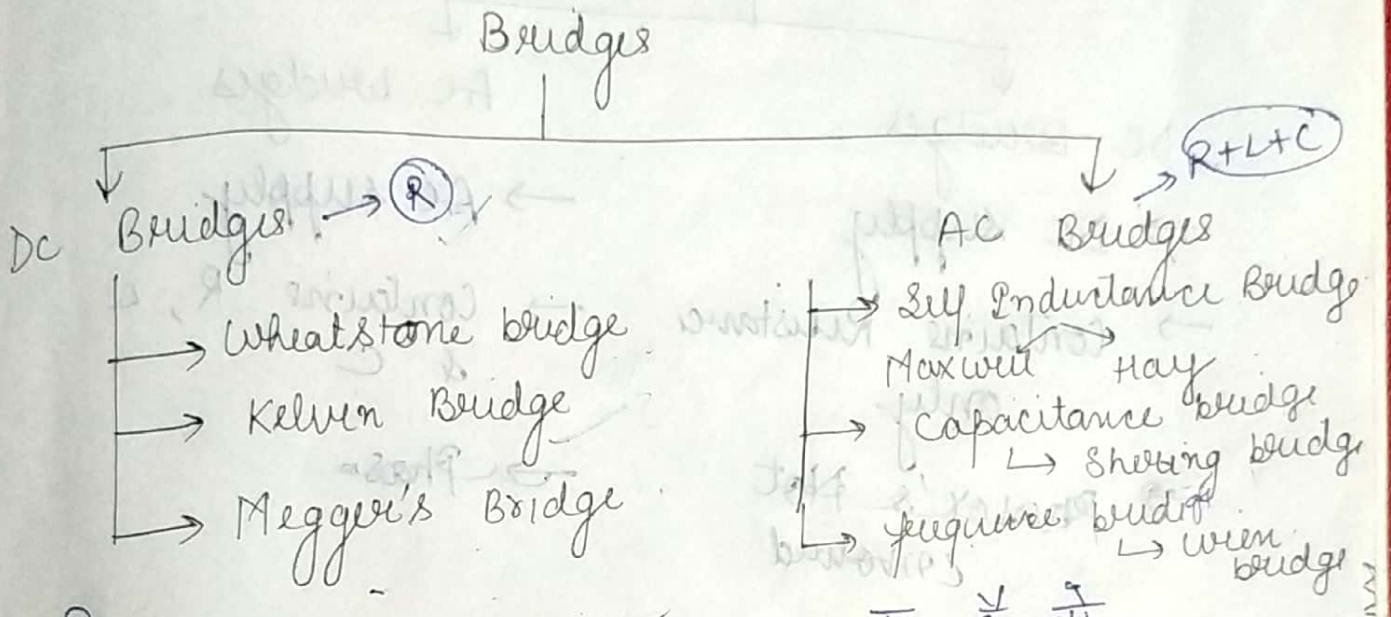 Bridges
DC Bridges → R
Wheatstone bridge
Kelvin Bridge
Megger's Bridge
AC Bridges → R+L+C
Self Inductance Bridge
Maxwell Hay
Capacitance bridge
↳ Shering bridge
bridge
↳ Wien
bridge